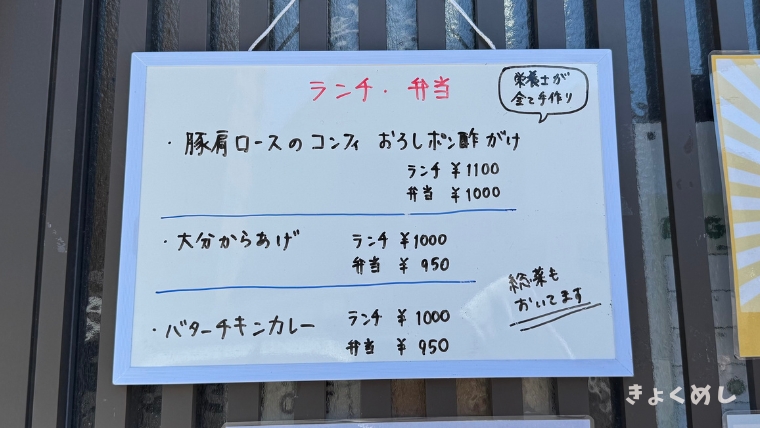 ランチ・弁当
栄養士が
全て手作り
・豚肩ロースのコンフィ おろしポン酢がけ
ランチ ¥1100
弁当 ¥1000
・大分からあげ ランチ ¥1000
弁当 ¥950
・バターチキンカレー ランチ ¥1000
弁当 ¥950
総菜も
おいてます
きょくめし